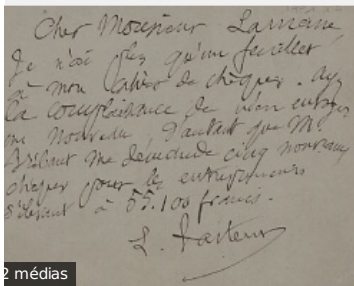 Cher Monsieur
Je n'ai plus qu'un feuillet
à mon cahier de chèques. Ayez
la complaisance de m'en envoyer
un nouveau d'autant que M.
me demande cinq nouveaux
chèques pour les entrepreneurs
s'élevant à 55.100 francs.
L. Pasteur
2 médias